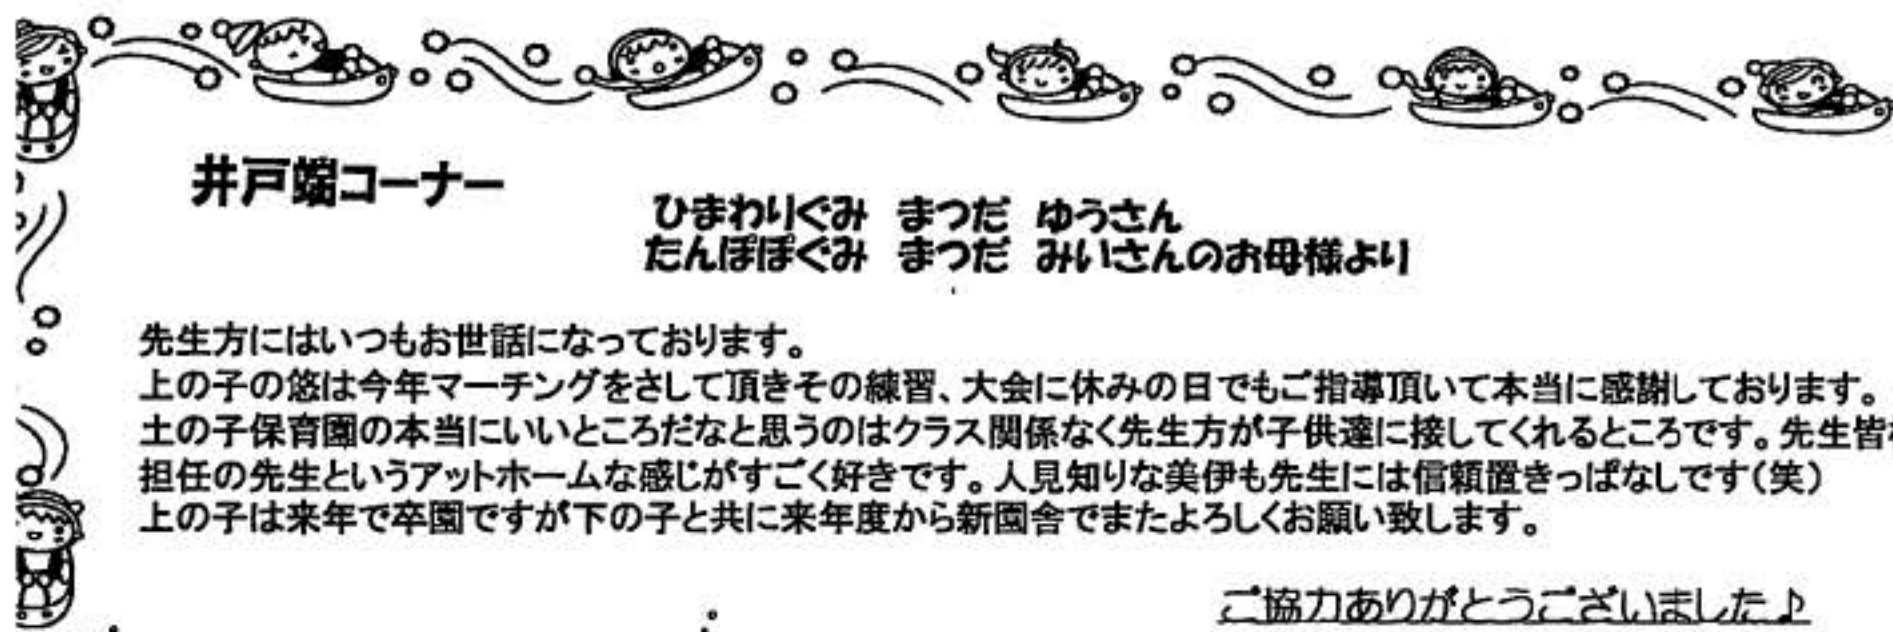 井戸端コーナー
ひまわりぐみ まつだ ゆうさん
たんぽぽぐみ まつだ みいさんのお母様より
先生方にはいつもお世話になっております。
上の子の悠は今年マーチングをさして頂きその練習、大会に休みの日でもご指導頂いて本当に感謝しております。
土の子保育園の本当にいいところだなと思うのはクラス関係なく先生方が子供達に接してくれるところです。先生皆
担任の先生というアットホームな感じがすごく好きです。人見知りな美伊も先生には信頼置きっぱなしです(笑)
上の子は来年で卒園ですが下の子と共に来年度から新園舎でまたよろしくお願い致します。
ご協力ありがとうございました♪